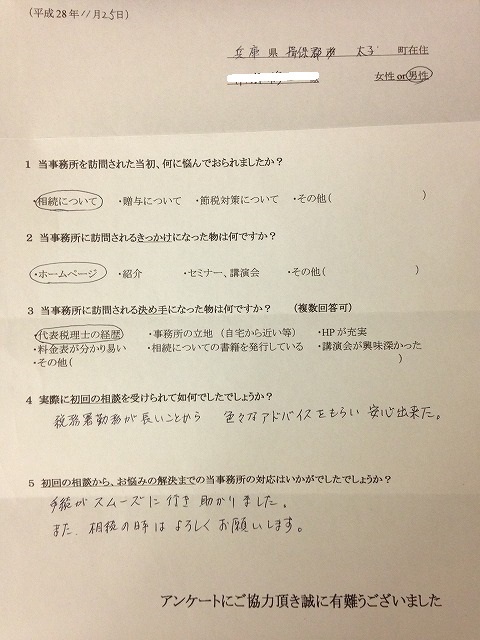 （平成28年11月25日）
兵庫県 揖保郡 太子 町在住
女性 or 男性
1 当事務所を訪問された当初、何に悩んでおられましたか？
・相続について ・贈与について ・節税対策について ・その他（ ）
2 当事務所に訪問されるきっかけになった物は何ですか？
・ホームページ ・紹介 ・セミナー、講演会 ・その他（ ）
3 当事務所に訪問される決め手になった物は何ですか？ （複数回答可）
・代表税理士の経歴 ・事務所の立地（自宅から近い等） ・HPが充実
・料金表が分かり易い ・相続についての書籍を発行している ・講演会が興味深かった
・その他（ ）
4 実際に初回の相談を受けられて如何でしたでしょうか？
税務署勤務が長いことから 色々なアドバイスをもらい 安心出来た。
5 初回の相談から、お悩みの解決までの当事務所の対応はいかがでしたでしょうか？
手続がスムーズに行き助かりました。
また、相続の時はよろしくお願いします。
アンケートにご協力頂き誠に有難うございました